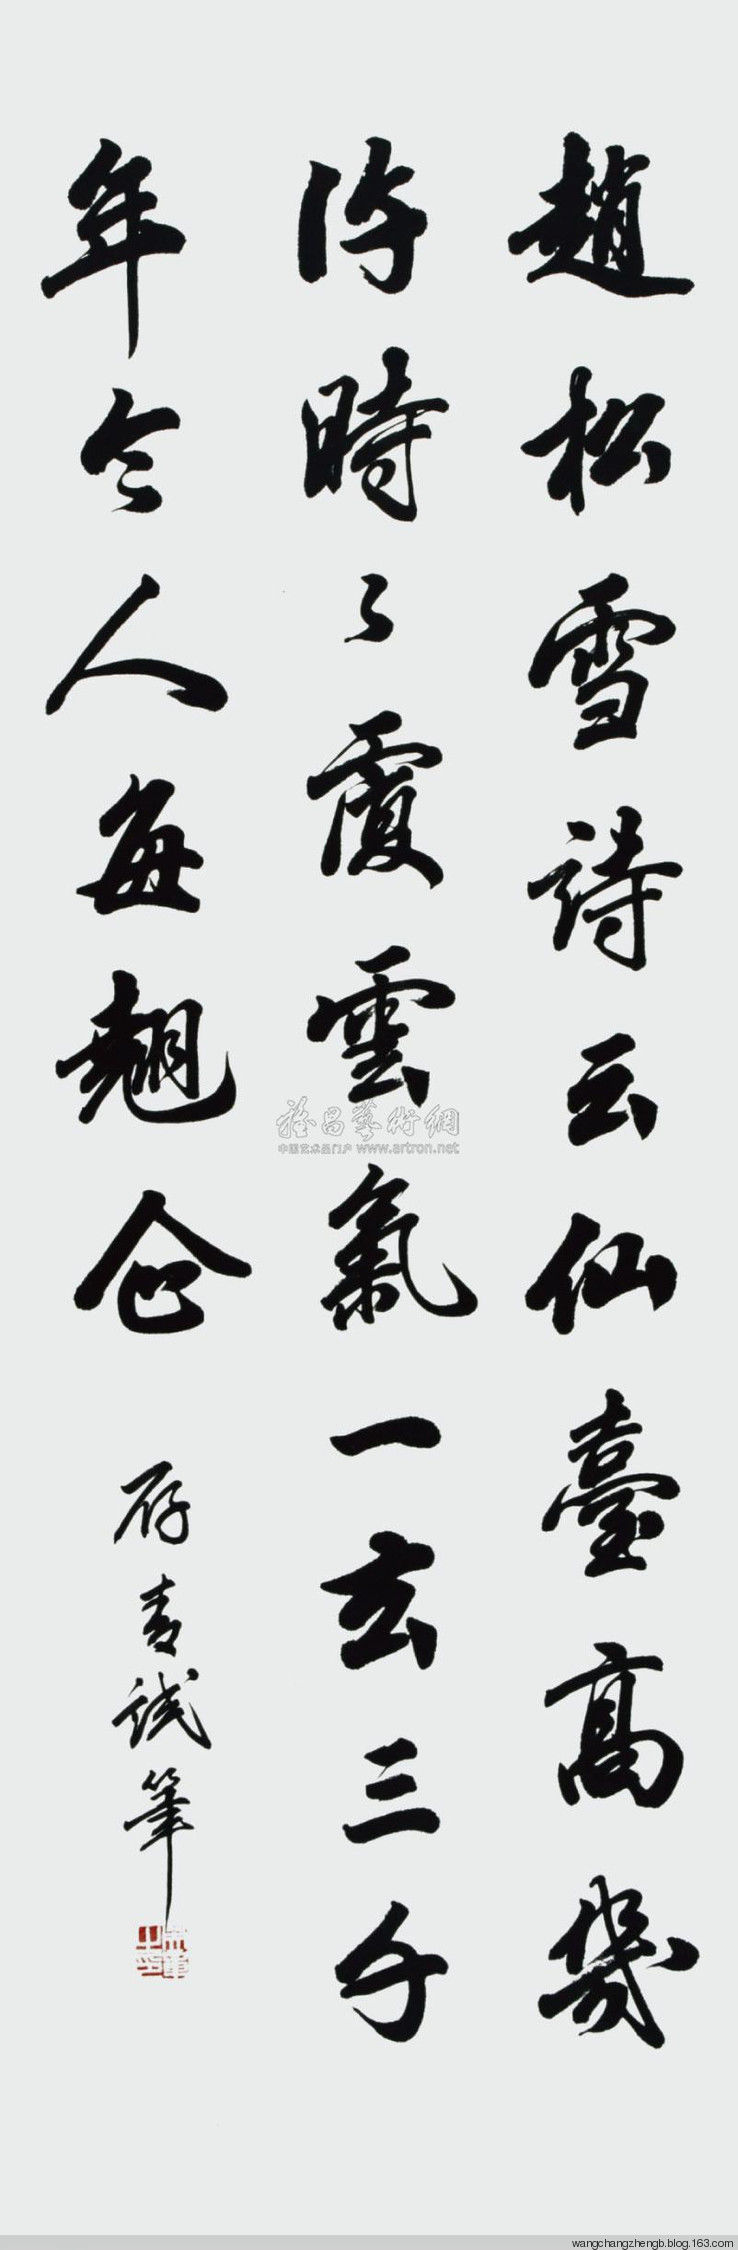 趙松雪詩云仙臺高幾
許時々覆雲氣一玄三千
年令人每翹企
存青試筆
雅昌藝術網
中国艺术品门户 www.artron.net
wangchangzhengb.blog.163.com